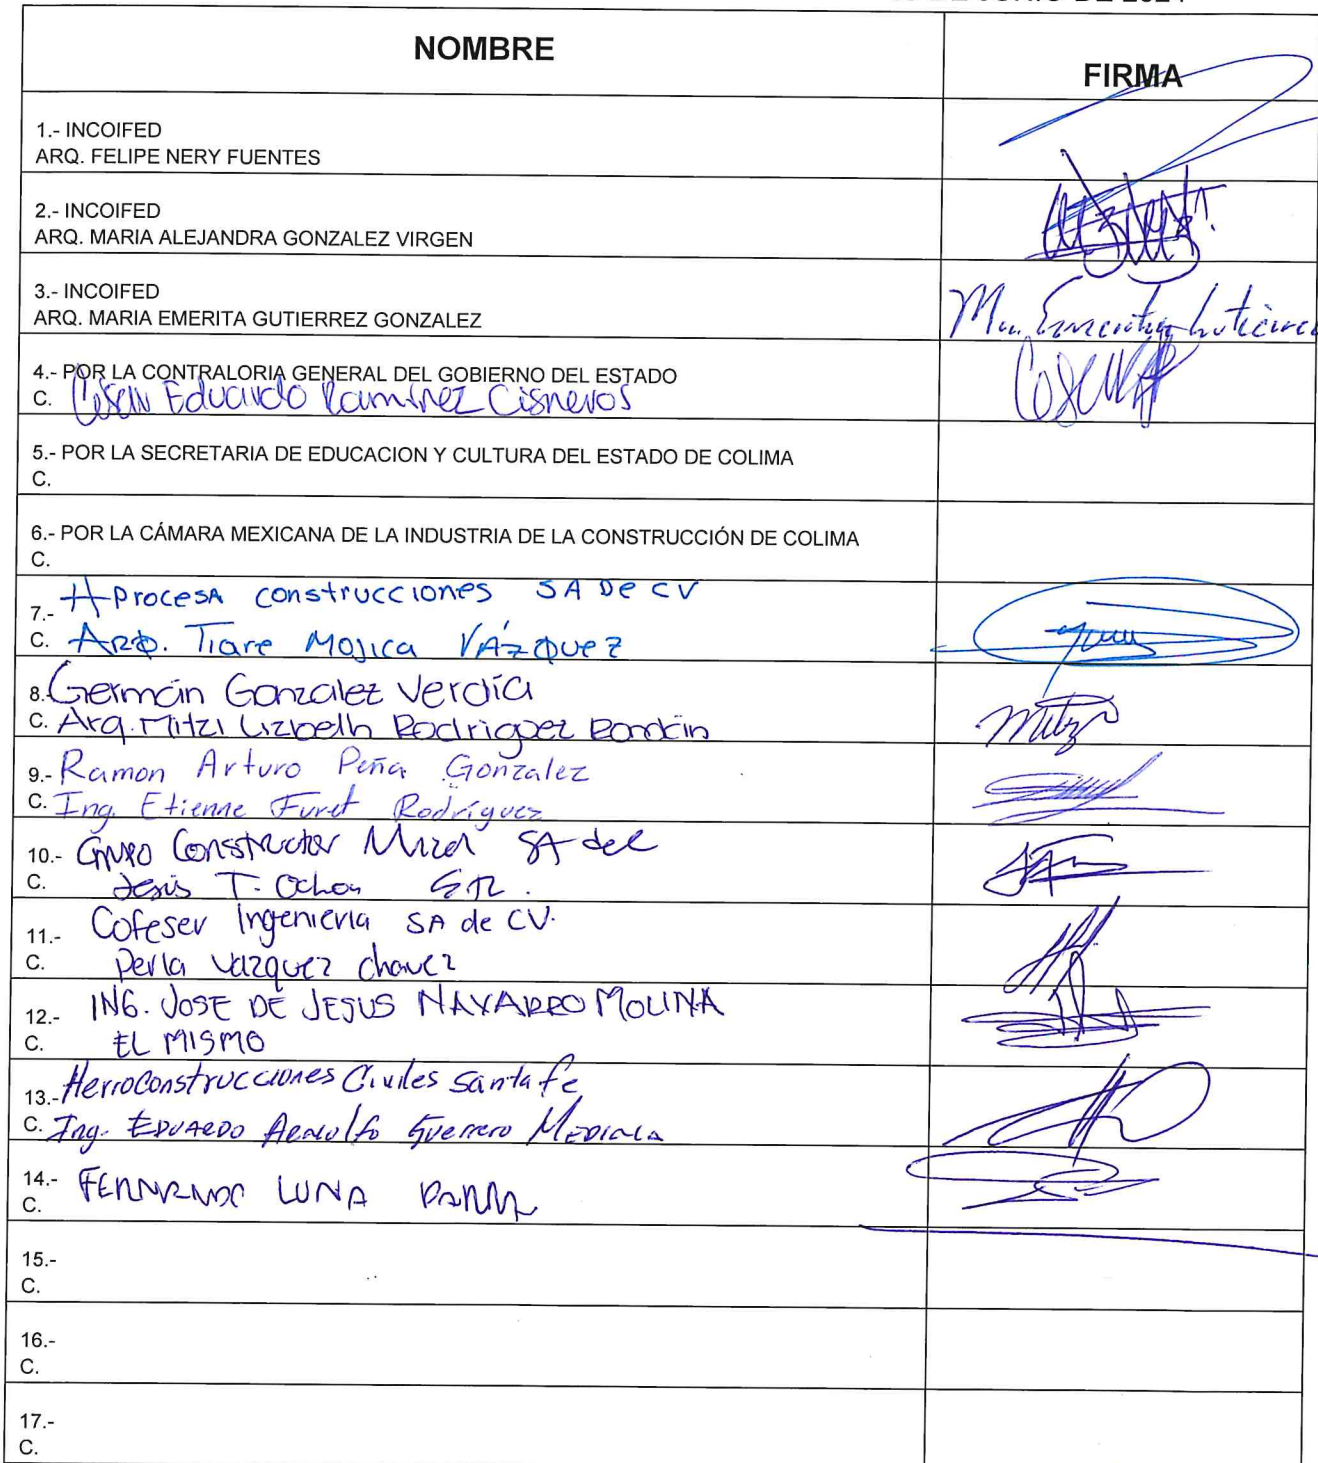 DE JUNIO DE 2024
NOMBRE
FIRMA
1.- INCOIFED
ARQ. FELIPE NERY FUENTES
2.- INCOIFED
ARQ. MARIA ALEJANDRA GONZALEZ VIRGEN
3.- INCOIFED
ARQ. MARIA EMERITA GUTIERREZ GONZALEZ
Ma. Emerita Gutierrez
4.- POR LA CONTRALORIA GENERAL DEL GOBIERNO DEL ESTADO
C. César Eduardo Ramirez Cisneros
5.- POR LA SECRETARIA DE EDUCACION Y CULTURA DEL ESTADO DE COLIMA
C.
6.- POR LA CÁMARA MEXICANA DE LA INDUSTRIA DE LA CONSTRUCCIÓN DE COLIMA
C.
7.- Procesa construcciones SA De CV
C. ARQ. Tiare Mojica VÁzquez
8.- Germán Gonzalez Verdía
C. Arq. Mitzi Lizbeth Rodriguez
Mitzi
9.- Ramon Arturo Peña Gonzalez
C. Ing. Etienne Furet Rodríguez
10.- Grupo Constructor SA de
C. Jesús T. Ochoa
11.- Cofeser Ingenieria SA de CV.
C. Perla Vazquez Chavez
12.- ING. JOSE DE JESUS NAVARRO MOLINA
C. EL MISMO
13.- Herroconstrucciones Civiles Santa fe
C. Ing. EDUARDO Arnulfo Guerrero MEDINA
14.- FERNANDO LUNA
C.
15.-
C.
16.-
C.
17.-
C.